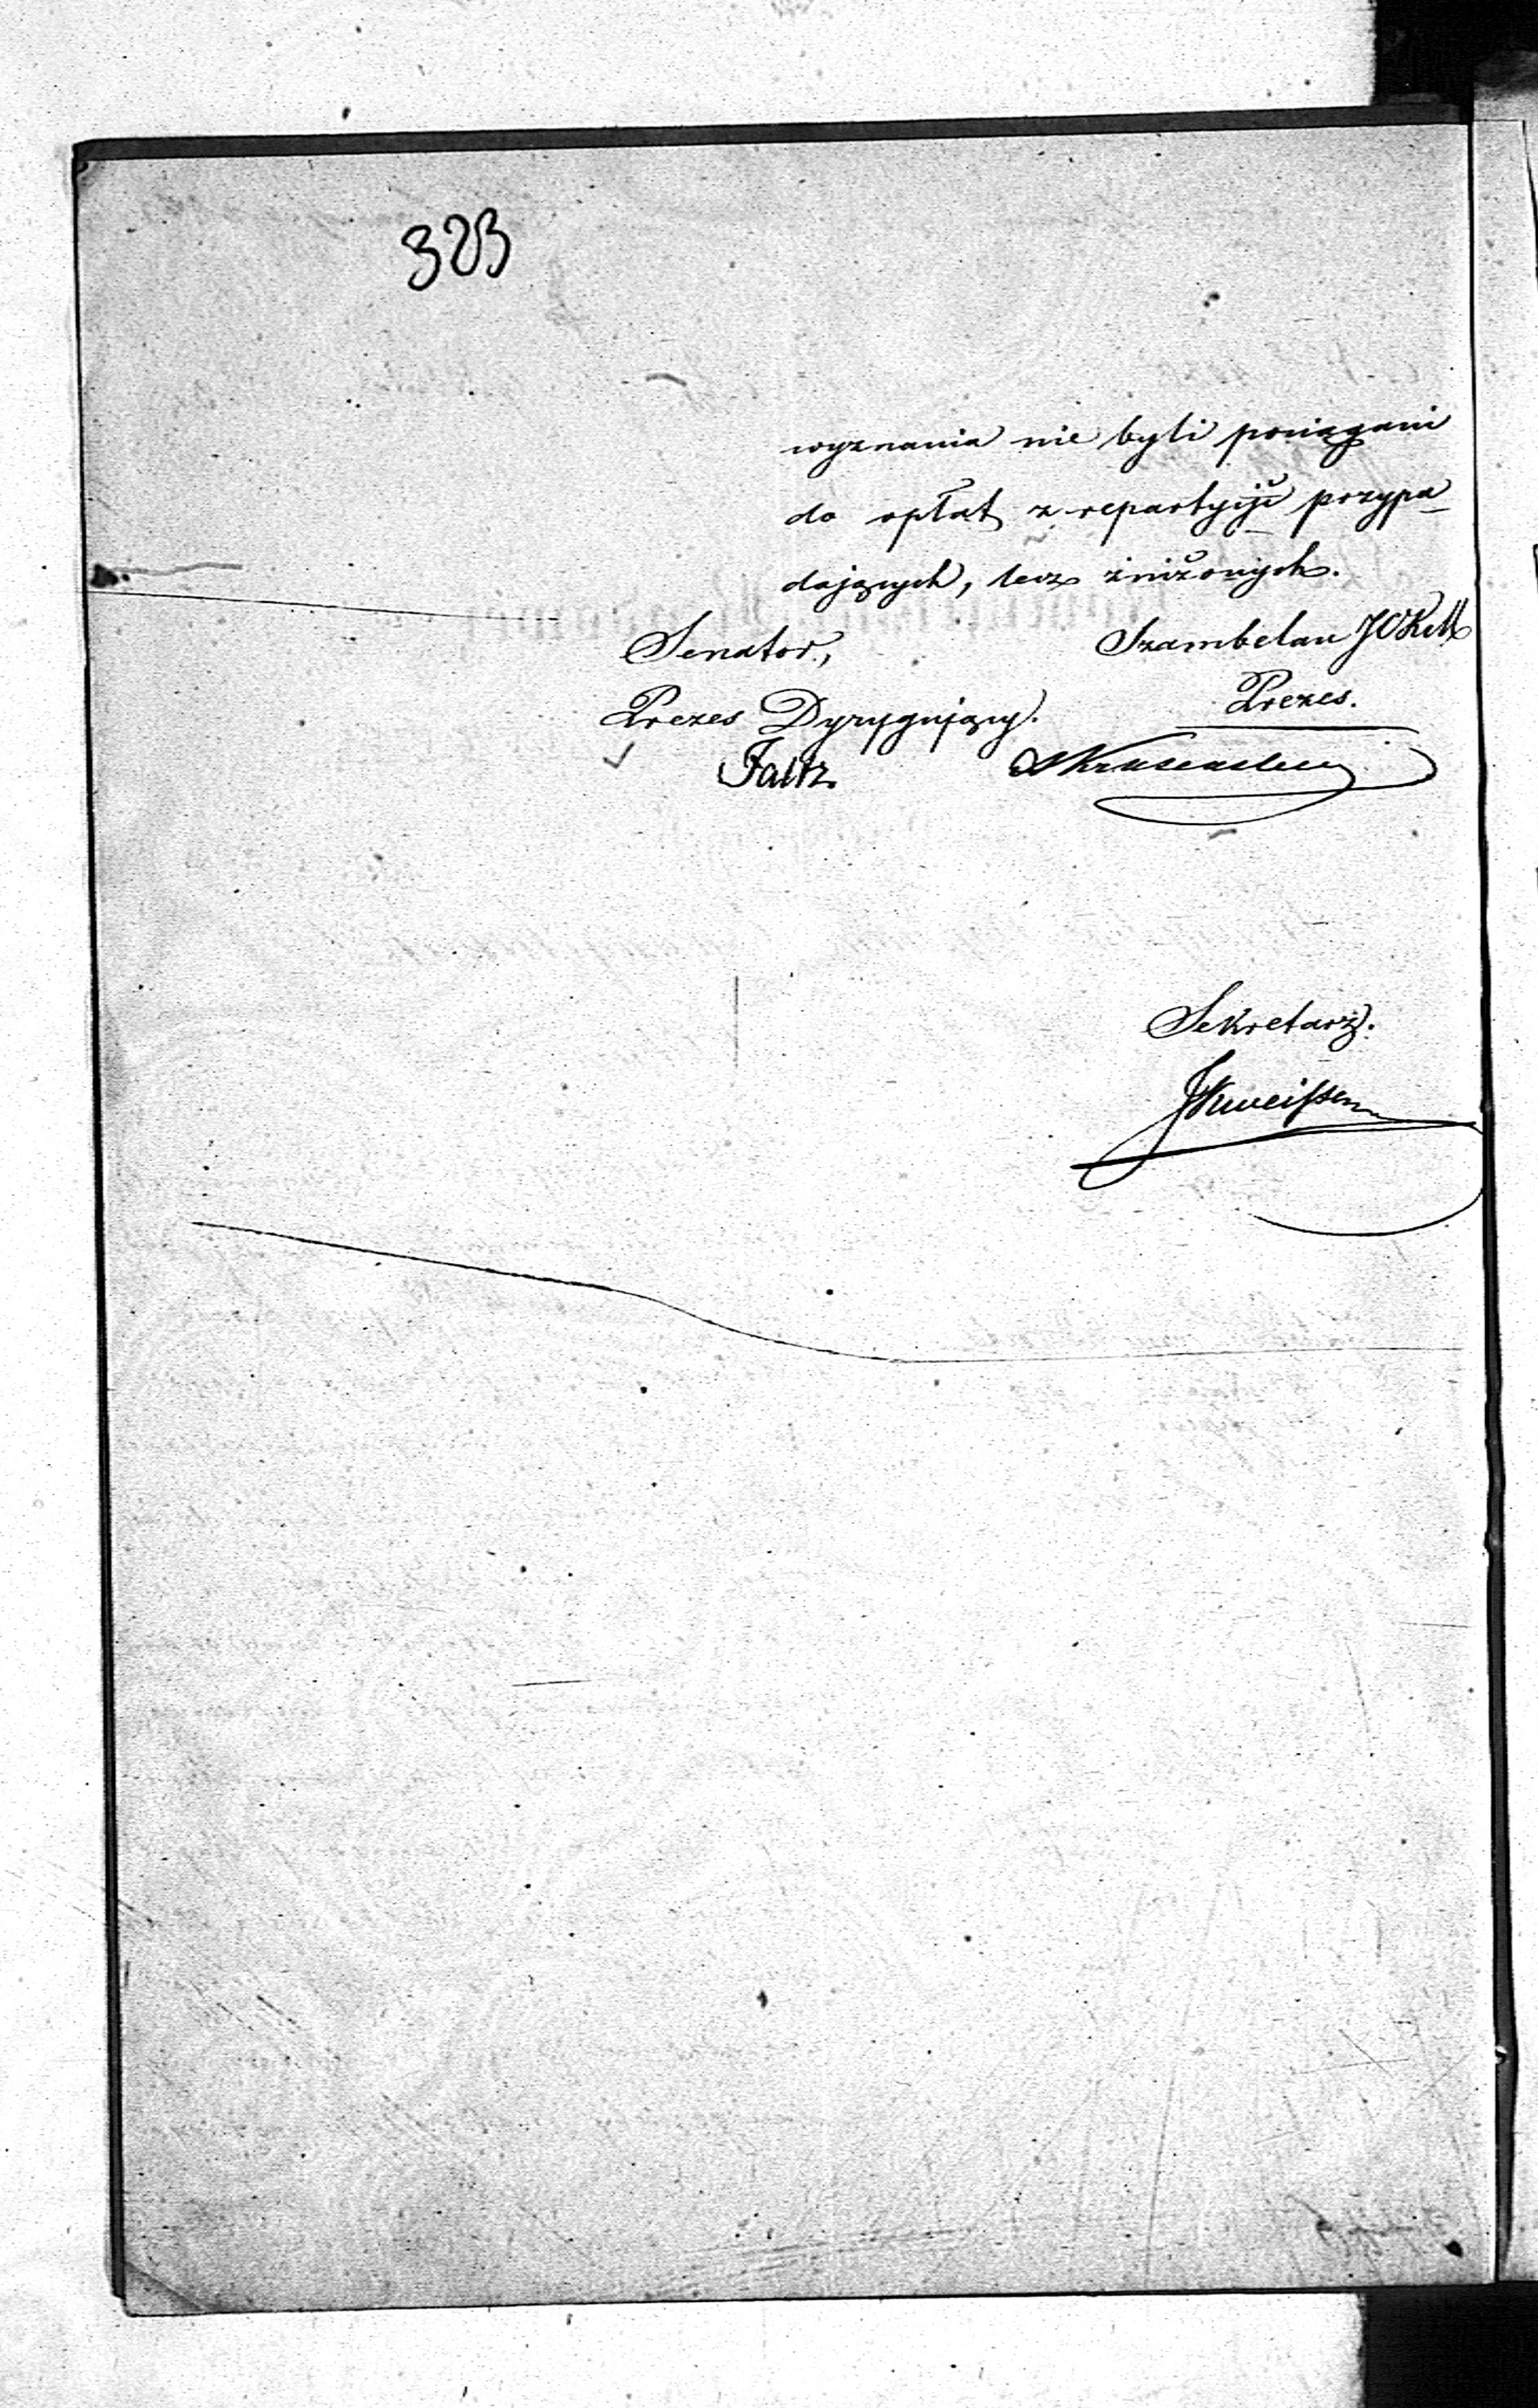 323
wyznania nie byli pociągani
do opłat z repartycji przypa-
dających, lecz zniżonych.
Senator,
Prezes Dyrygujący.
Faltz.
Szambelan
Prezes.
Sekretarz.